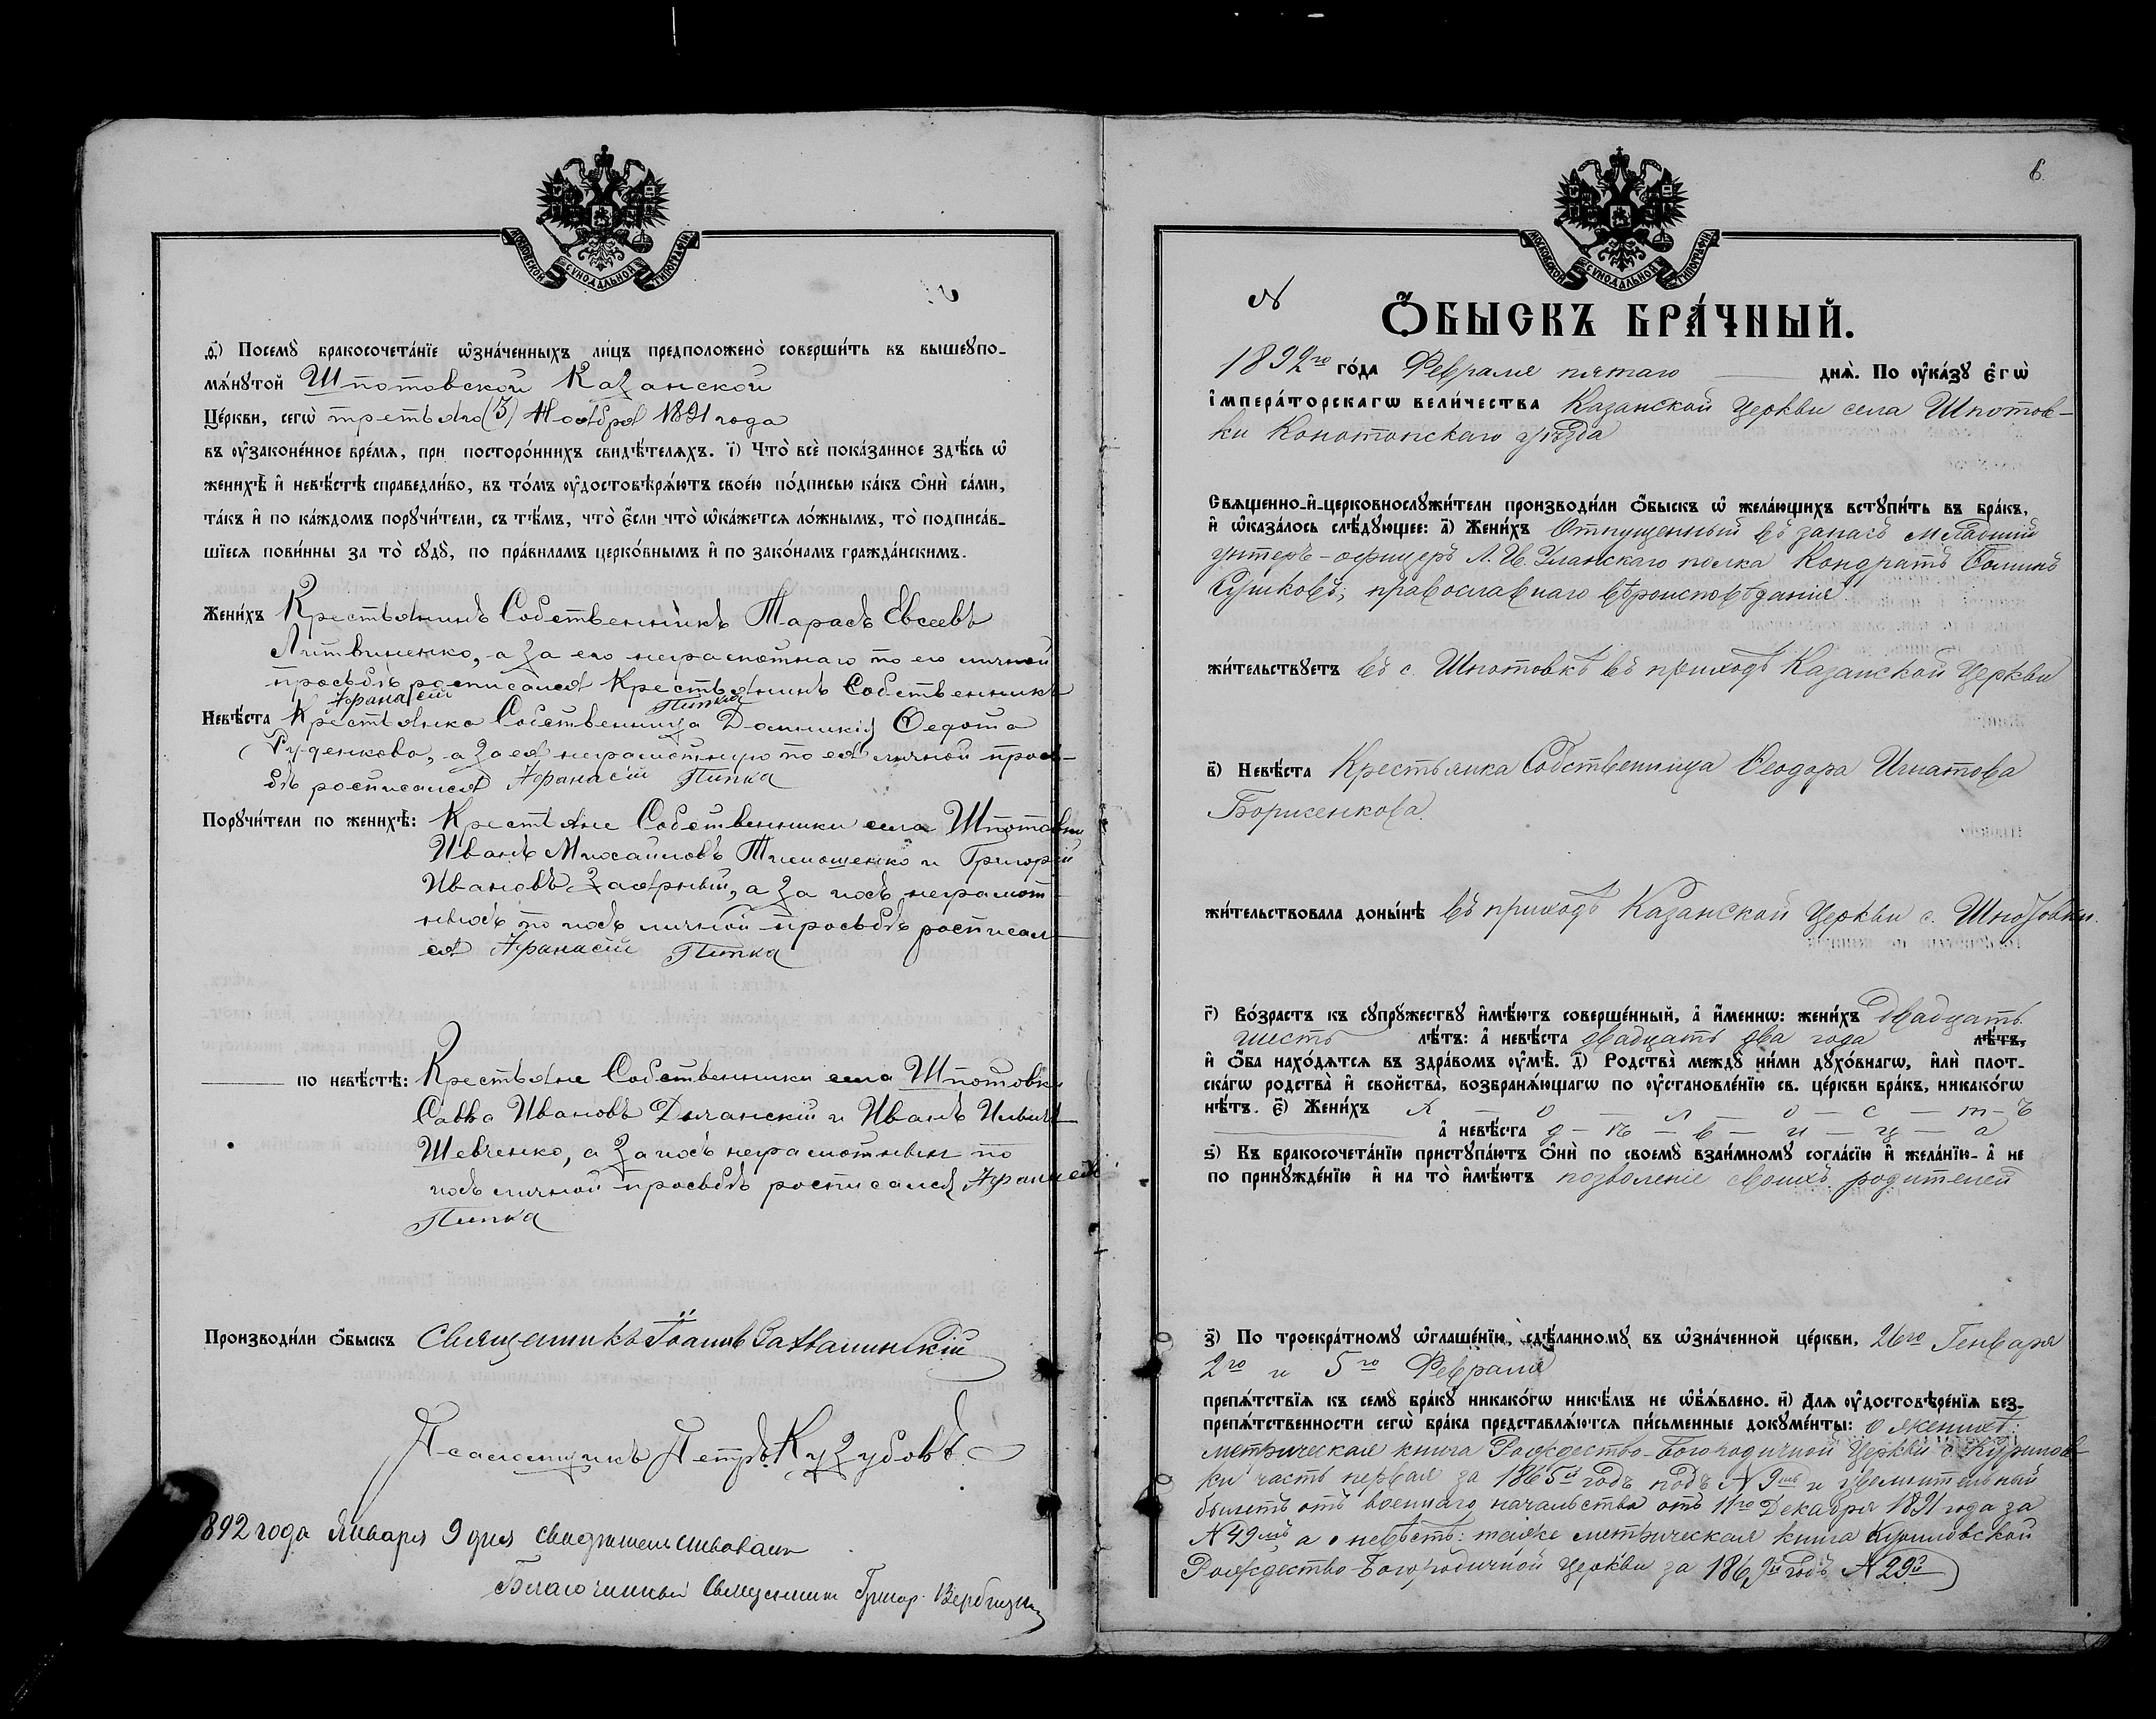 МОСКОВСКОЙ СѴНОДАЛЬНОЙ ТИПОГРАФІИ
ѳ҃) Посемꙋ̀ бракосочета́нїе ѡ҆зна́ченныхъ ли́цъ предположено̀ соверши́ть въ вышеꙋпо-
мѧ́нꙋтой Шпотовской Казанской
Це́ркви, сегѡ̀ третьяго (3) Ноября 1891 года
въ ᲂу҆законе́нное вре́мѧ, при посторо́ннихъ свидѣ́телѧхъ. і҃) Что̀ всѐ пока́занное здѣ́сь ѡ҆
женихѣ̀ и҆ невѣ́стѣ справедли́во, въ то́мъ ᲂу҆достовѣрѧ́ютъ свое́ю по́дписью ка́къ ѻ҆нѝ са́ми,
та́къ и҆ по ка́ждомъ порꙋчи́тели, съ тѣ́мъ, что̀ є҆́сли что̀ ѡ҆ка́жется ло́жнымъ, то̀ подписа́в-
шїеся пови́нны за то̀ сꙋдꙋ̀, по пра́виламъ церко́внымъ и҆ по зако́намъ гражда́нскимъ.
Жени́хъ Крестьянинъ Собственникъ Тарасъ Евсеевъ
Литвиненко, а за его неграмотнаго по его личной
просьбѣ росписался Крестьянинъ Собственникъ
Афанасій Пипка
Невѣ́ста Крестьянка Собственница Домникія Федота
Руденкова, а за ея неграмотную по ея личной прось-
бѣ росписался Афанасій Пипка
Порꙋчи́тели по женихѣ̀: Крестьяне Собственники села Шпотовки
Иванъ Михайловъ Тимошенко и Григорій
Ивановъ Заярный, а за ихъ неграмот-
ныхъ по ихъ личной просьбѣ росписал-
ся Афанасій Пипка
по невѣ́стѣ: Крестьяне Собственники села Шпотовки
Савва Ивановъ и Иванъ
Шевченко, а за ихъ неграмотныхъ по
ихъ личной просьбѣ росписался Афанасій
Пипка
Производи́ли ѻ҆́быскъ Священникъ Іоаннъ
Псаломщикъ Петръ Кузубовъ
892 года Января 9 дня свидѣтельствовалъ
Благочинный Священникъ Григор. Вербицкій
6
МОСКОВСКОЙ СѴНОДАЛЬНОЙ ТИПОГРАФІИ
№
Ѻ҆́БЫСКЪ БРА́ЧНЫЙ.
1892го го́да Февраля пятаго днѧ̀. По ᲂу҆ка́зꙋ є҆гѡ̀
і҆мпера́торскагѡ вели́чества Казанской Церкви села Шпотов-
ки Конотопскаго уѣзда
Свѧще́нно-и҆-церковнослꙋжи́тели производи́ли ѻ҆́быскъ ѡ҆ жела́ющихъ встꙋпи́ть въ бра́къ,
и҆ ѡ҆каза́лось слѣ́дꙋющее: а҃) Жени́хъ Отпущенный въ запасъ младшій
унтеръ-офицеръ Л. Гв. Уланскаго полка Кондратъ
православнаго вѣроисповѣданія
жи́тельствꙋетъ въ с. Шпотовкѣ въ приходѣ Казанской Церкви
в҃) Невѣ́ста Крестьянка Собственница Ѳеодора Игнатова
Борисенкова.
жи́тельствовала доны́нѣ въ приходѣ Казанской Церкви с. Шпотовки.
г҃) Во́зрастъ къ сꙋпрꙋ́жествꙋ и҆мѣ́ютъ соверше́нный, а҆ и҆́меннѡ: жени́хъ двадцать
шесть лѣ́тъ: а҆ невѣ́ста двадцать два года лѣ́тъ,
и҆ ѻ҆́ба нахо́дѧтся въ здра́вомъ ᲂу҆мѣ̀. д҃) Родства̀ междꙋ̀ ни́ми дꙋхо́внагѡ, и҆лѝ пло́т-
скагѡ родства̀ и҆ сво́йства, возбранѧ́ющагѡ по ᲂу҆становле́нїю св. це́ркви бра́къ, никако́гѡ
нѣ́тъ. є҃) Жени́хъ х — о — л — о — с — т — ъ
а҆ невѣ́ста д — ѣ — в — и — ц — а
ѕ҃) Къ бракосочета́нїю пристꙋпа́ютъ ѻ҆нѝ по своемꙋ̀ взаи́мномꙋ согла́сїю и҆ жела́нїю- а҆ не
по принꙋжде́нїю и҆ на то̀ и҆мѣ́ютъ позволеніе своихъ родителей
з҃) По троекра́тномꙋ ѡ҆глаше́нїю, сдѣ́ланномꙋ въ ѡ҆зна́ченной це́ркви, 26го Генваря
2го и 5го Февраля
препѧ́тствїѧ къ семꙋ̀ бра́кꙋ никако́гѡ никѣ́мъ не ѡ҆б̾ѧ́влено. и҃) Длѧ ᲂу҆достовѣре́нїѧ без-
препѧ́тственности сегѡ̀ бра́ка представлѧ́ются пи́сьменные докꙋме́нты: о женихѣ:
метрическая книга Рождество-Богородичной Церкви с. Куриловки
часть первая за 1865й годъ подъ № 9мъ и увольнительный
билетъ отъ военнаго начальства отъ 11го Декабря 1891 года за
№ 49мъ, а о невѣстѣ: также метрическая книга Куриловской
Рождество-Богородичной Церкви за 1869й годъ № 29й